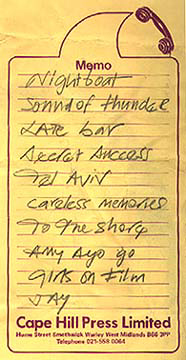 Memo
Nightboat
Sound of thunder
LATE bar
Secret Success
Tel Aviv
careless memories
To the shore
Any ayo go
Girls on Film
JAY
Cape Hill Press Limited
Hume Street Smethwick Warley West Midlands B66 3PP
Telephone 021-558 0064